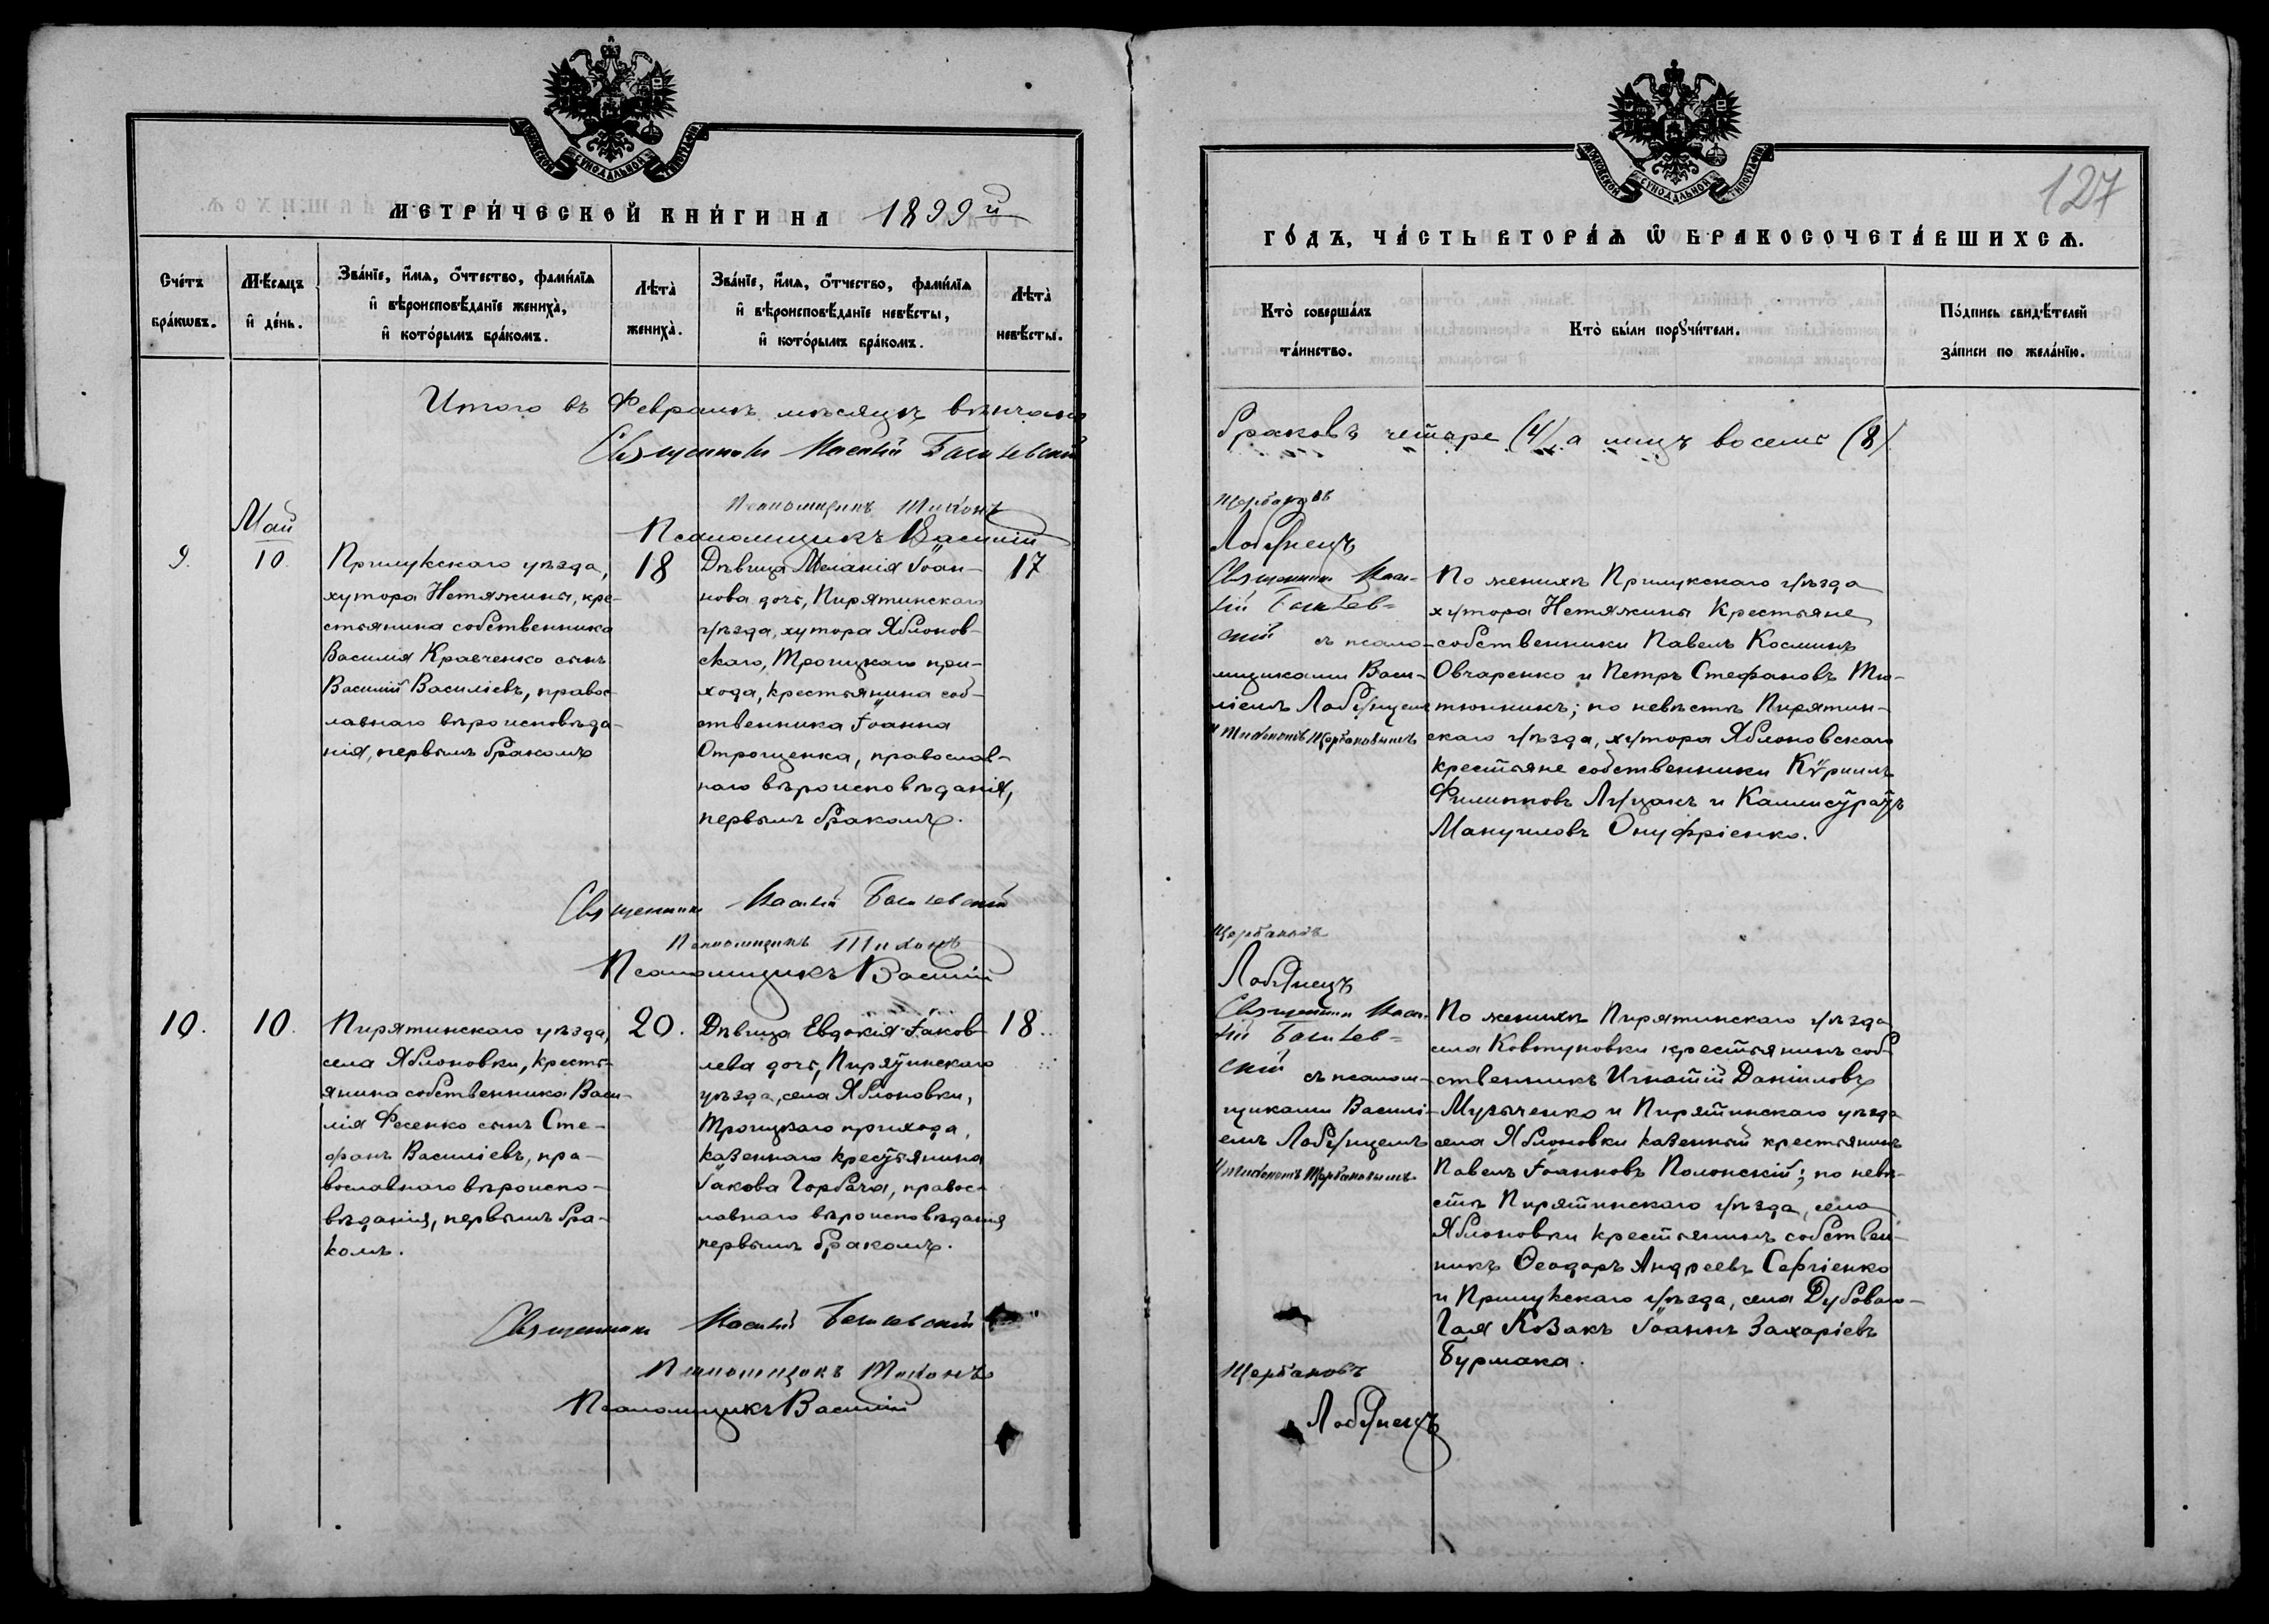 МОСКОВСКОЙ СУНОДАЛЬНОЙ ТИПОГРАФІИ
МЕТРИ́ЧЕСКОЙ КНИ́ГИ НА 1899й
Сче́тъ бра́кѡвъ.
Мѣ́сяцъ и҆ де́нь.
Зва́нїе, и҆́мѧ, о҆́тчество, фами́лїѧ
и҆ вѣроисповѣ́данїе женихà,
и҆ кото́рымъ бра́комъ.
Лѣтà женихà.
Зва́нїе, и҆́мѧ, о҆́тчество, фами́лїѧ
и҆ вѣроисповѣ́данїе невѣ́сты,
и҆ кото́рымъ бра́комъ.
Лѣтà невѣ́сты.
Итого въ Февралѣ мѣсяцѣ вѣнчано
Священникъ
Псаломщикъ Тихонъ
Псаломщикъ Василій
Май
9.
10.
Прилукскаго уѣзда,
хутора Нетяжина, кре-
стьянина собственника
Василія Кравченко сынъ
Василій Василіевъ, правос-
лавнаго вѣроисповѣда-
нія, первымъ бракомъ
18
Дѣвица Меланія Іоан-
нова дочь, Пирятинскаго
уѣзда, хутора Яблонов-
скаго, Троицкаго при-
хода, крестьянина соб-
ственника Іоанна
Отрощенка, православ-
наго вѣроисповѣданія,
первымъ бракомъ.
17
Священникъ
Псаломщикъ Тихонъ
Псаломщикъ Василій
10.
10.
Пирятинскаго уѣзда,
села Яблоновки, кресть-
янина собственника Васи-
лія Фесенко сынъ Сте-
фанъ Василіевъ, пра-
вославнаго вѣроиспо-
вѣданія, первымъ бра-
комъ.
20.
Дѣвица Евдокія Іаков-
лева дочь, Пирятинскаго
уѣзда, села Яблоновки,
Троицкаго прихода,
казеннаго крестьянина
Іакова Горбача, правос-
лавнаго вѣроисповѣданія
первымъ бракомъ.
18.
Священникъ
Псаломщикъ Тихонъ
Псаломщикъ Василій
МОСКОВСКОЙ СУНОДАЛЬНОЙ ТИПОГРАФІИ
127
ГО́ДЪ, ЧА́СТЬ ВТОРА́Ѧ Ѽ БРАКОСОЧЕТА́ВШИХСѦ.
Кто̀ соверша́лъ
та́инство.
Кто̀ бы́ли порꙋчи́тели.
По́дпись свидѣ́телей
за́писи по жела́нїю.
браковъ четыре (4), а лицъ восемь (8)
Щербаковъ
Лобунецъ
Священникъ
съ псало-
мщиками Васи-
ліемъ Лобунцемъ
и Тихономъ Щербаковымъ
По женихѣ Прилукскаго уѣзда
хутора Нетяжина крестьяне
собственники Павелъ Косминъ
Овчаренко и Петръ Стефановъ Тю-
тюнникъ; по невѣстѣ Пирятин-
скаго уѣзда, хутора Яблоновскаго
крестьяне собственники Кѵриллъ
Филипповъ Луцакъ и Каллистратъ
Мануиловъ Онуфріенко.
Щербаковъ
Лобунецъ
Священникъ
съ псалом-
щиками Василі-
емъ Лобунцемъ
и Тихономъ Щербаковымъ
По женихѣ Пирятинскаго уѣзда
села Ковтуновки крестьянинъ соб-
ственникъ Игнатій Даніиловъ
Музыченко и Пирятинскаго уѣзда
села Яблоновки казенный крестьянинъ
Павелъ Іоанновъ Полонскій; по невѣ-
стѣ Пирятинскаго уѣзда, села
Яблоновки крестьянинъ собствен-
никъ Ѳеодоръ Андреевъ Сергіенко
и Прилукскаго уѣзда, села Дубоваго-
Гая Козакъ Іоаннъ Захаріевъ
Бурмака.
Щербаковъ
Лобунецъ